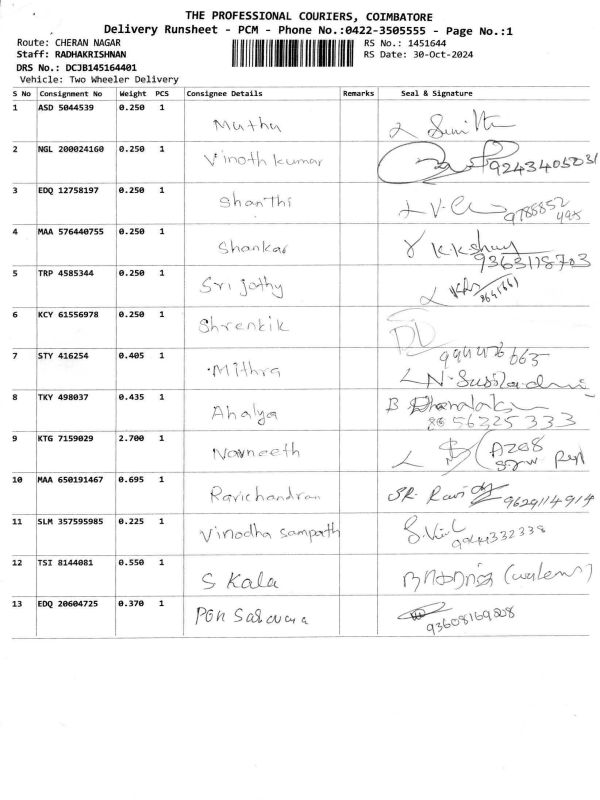 THE PROFESSIONAL COURIERS, COIMBATORE
Delivery Runsheet - PCM - Phone No.:0422-3505555 - Page No.:1
Route: CHERAN NAGAR RS No.: 1451644
Staff: RADHAKRISHNAN RS Date: 30-Oct-2024
DRS No.: DCJB145164401
Vehicle: Two Wheeler Delivery
S No Consignment No Weight PCS Consignee Details Remarks Seal & Signature
1 ASD 5044539 0.250 1
Muthu
2 NGL 200024160 0.250 1
Vinoth kumar 9243405031
3 EDQ 12758197 0.250 1
Shanthi
4 MAA 576440755 0.250 1
Shankar
9363118703
5 TRP 4585344 0.250 1
Sri jothy
6 KCY 61556978 0.250 1
7 STY 416254 0.405 1
Mithra
8 TKY 498037 0.435 1
Ahalya
9 KTG 7159029 2.700 1
Navneeth
10 MAA 650191467 0.695 1
Ravichandran 9629114914
11 SLM 357595985 0.225 1
Vinodha sampath
12 TSI 8144081 0.550 1
S Kala
13 EDQ 20604725 0.370 1
PON